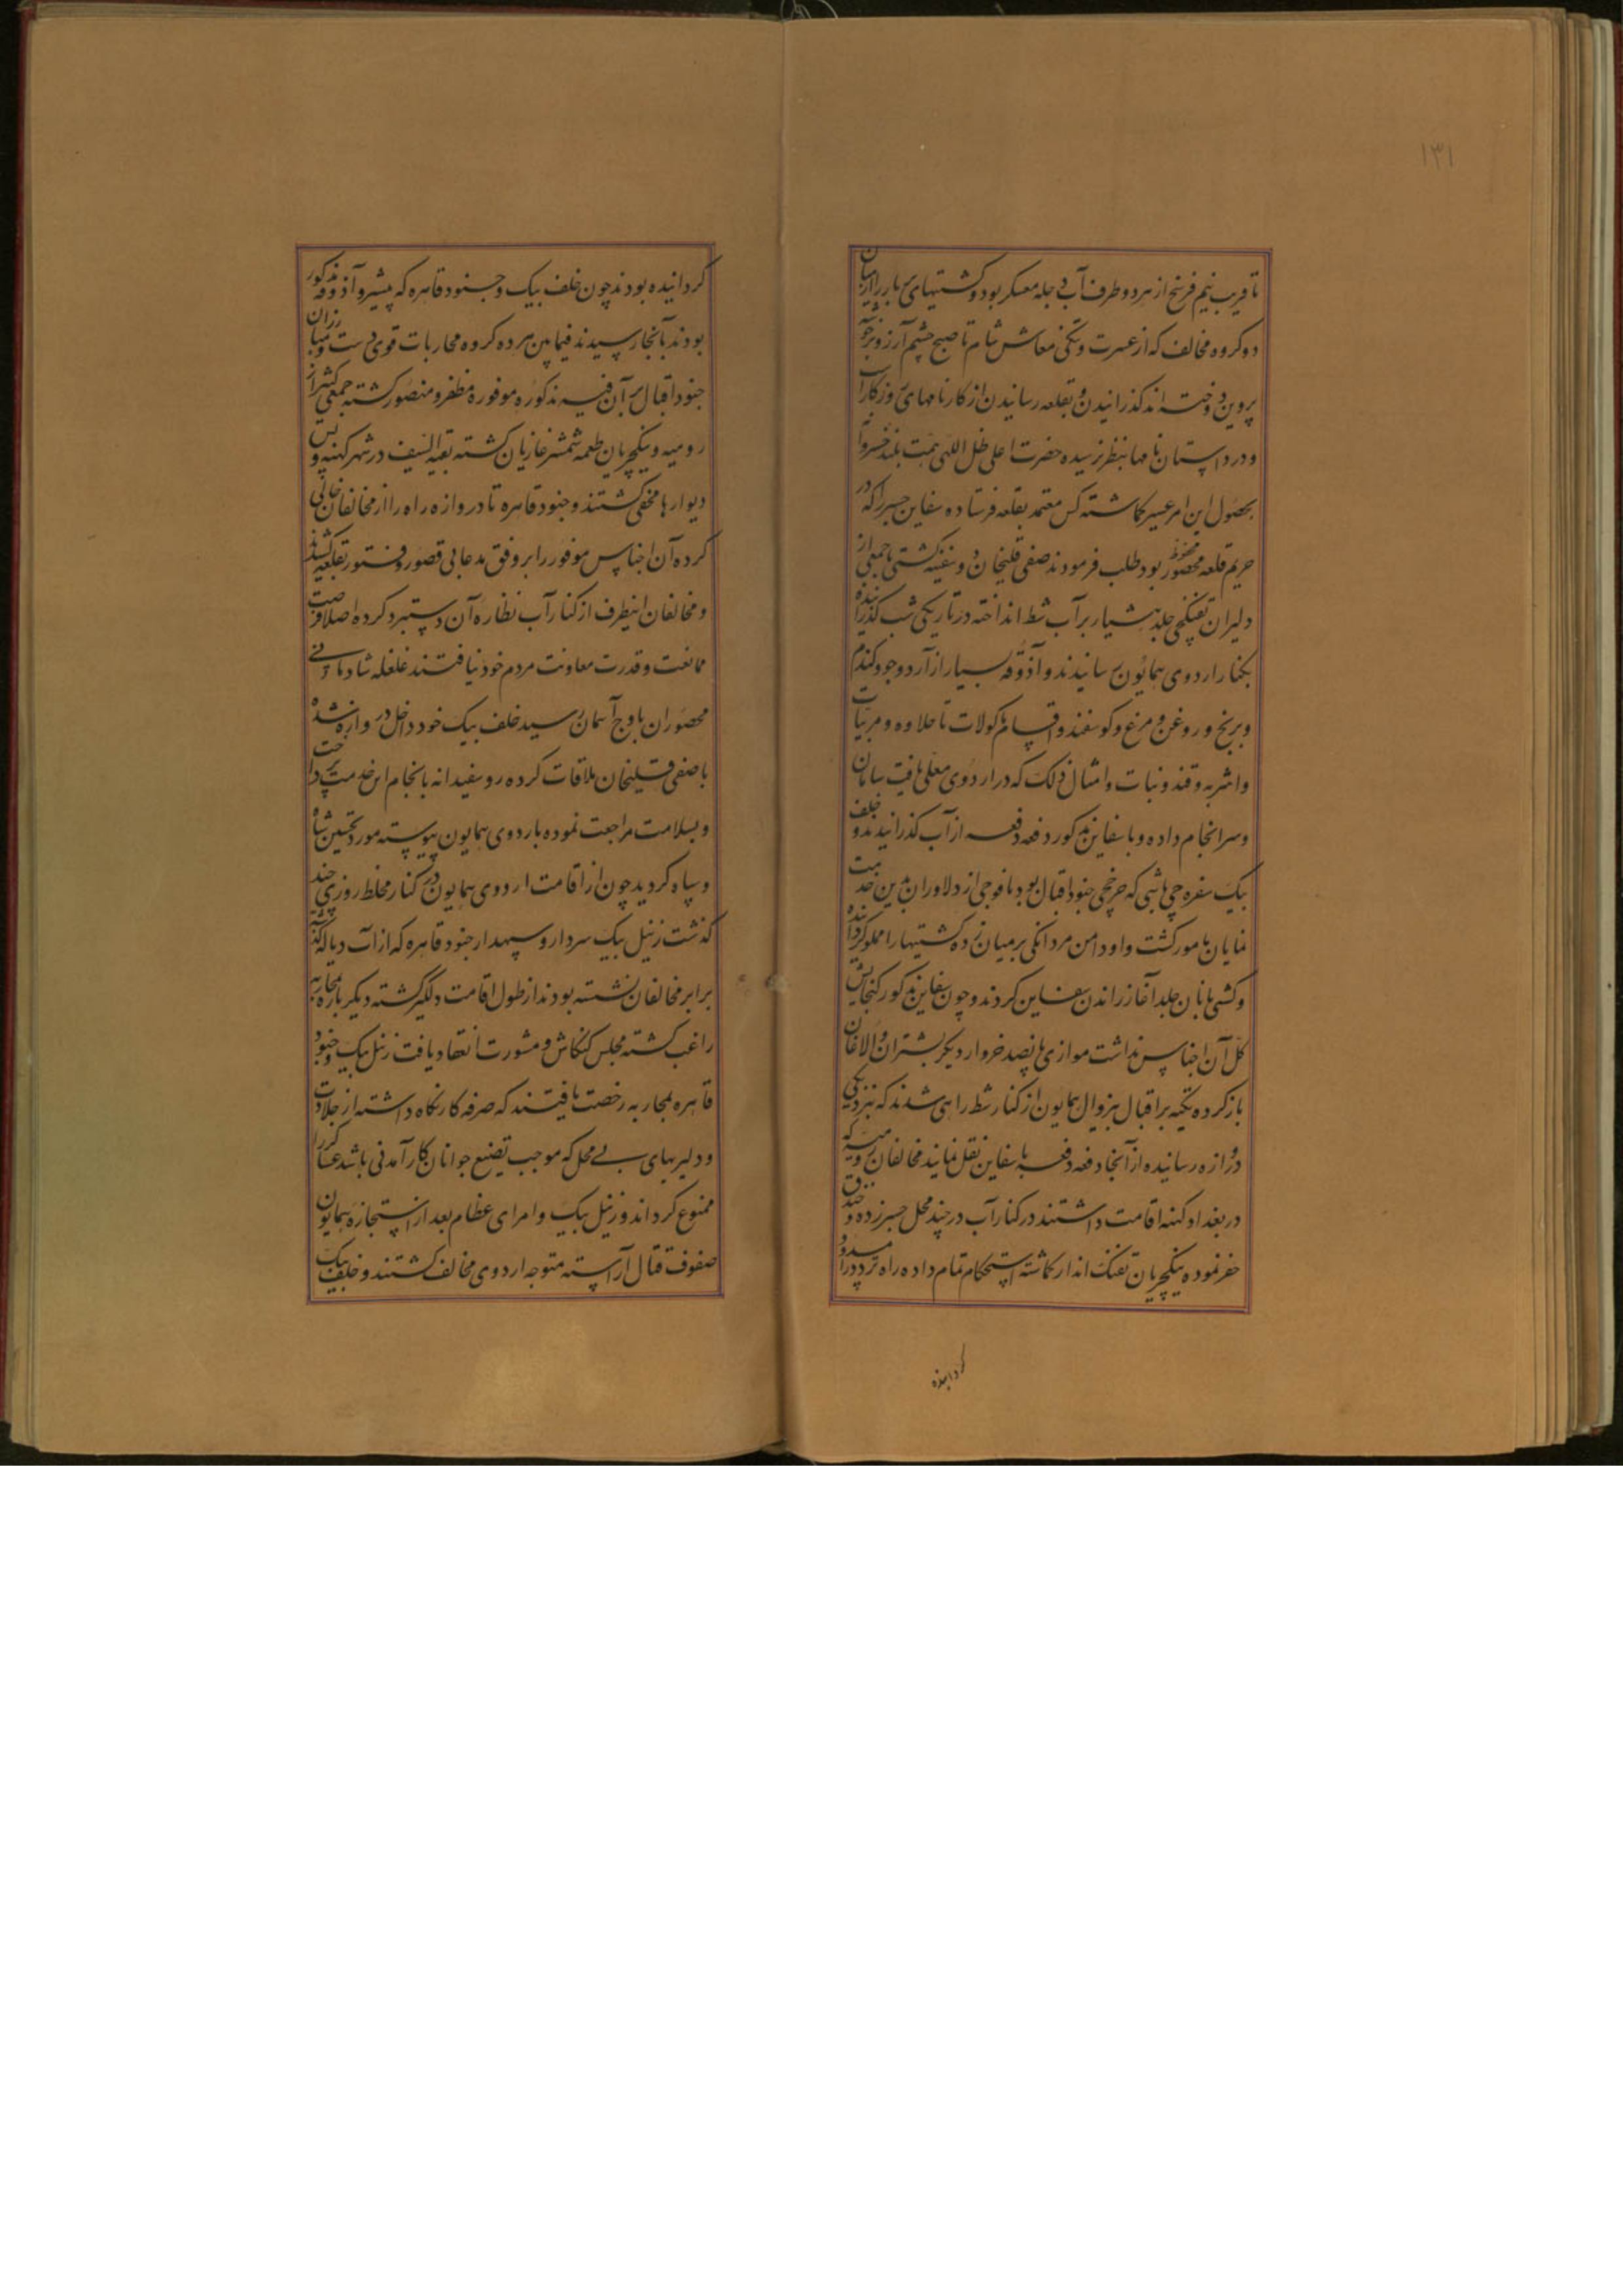 ۱۳۱
تا قریب نیم فرسخ از هر دو طرف آب دجله معسکر بود و کشتیهای پر بار را از میان
دو کروه مخالف که از عسرت و تنکی معاش شام تا صبح چشم آرزو بر خوشه
پروین دوخته اند کذرانیدن و بقلعه رسانیدن از کارنامهای روزکار است
و در داستان نامها بنظر نرسیده حضرت اعلی ظل اللهی همت بلند خسروانه
بحصول این امر عسیر کماشته کس معتمد بقلعه فرستاده سفاین جسر را که در
حریم قلعه محصور محفوظ بود طلب فرمودند صفی قلیخان دو سفینه کشتی با جمعی از
دلیران تفنکچی جلد هشیار بر آب شط انداخته در تاریکی شب کذرانیده
بکنار اردوی همایون رسانیدند و آذوقه بسیار از آرد و جو و کندم
و برنج و روغن و مرغ و کوسفند و اقسام ماکولات تا حلاوه و مربیات
و اشربه و قند و نبات و امثال ذلک که در اردوی معلی یافت سامان
و سرانجام داده و با سفاین مذکور دفعه دفعه از آب کذرانیدند و خلف
بیک سفره چی باشی که چرخچی جنود اقبال بود با فوجی از دلاوران بدین خدمت
نمایان مامور کشت و او دامن مردانکی بر میان زده کشتیها را مملو کردانیده
و کشتی بانان جلد آغاز راندن سفاین کردند و چون سفاین مذکور کنجایش
کل آن اجناس نداشت موازی پانصد خروار دیکر بشتران و الاغان
بار کرده تکیه بر اقبال بیزوال همایون از کنار شط راهی شدند که بنزدیکی
دروازه رسانیده از آنجا دفعه دفعه با سفاین نقل نمایند مخالفان رومیه که
در بغداد کهنه اقامت داشتند در کنار آب در چند محل جسر زده و خندق
حفر نموده ینکچریان تفنک انداز کماشته استحکام تمام داده راه تردد را مسدود
کردانیده
کردانیده بودند چون خلف بیک و جنود قاهره که پیشرو آذوقه مذکور
بودند بآنجا رسیدند فیما بین هر ده کروه محاربات قوی دست و مبارزان
جنود اقبال بر آن فئه مذکوره موفوره مظفر و منصور کشته جمعی کثیر از
رومیه و ینکچریان طعمه شمشیر غازیان کشته بقیة السیف در شهر کهنه و پس
دیوارها مخفی کشتند و جنود قاهره تا دروازه راه را از مخالفان خالی
کرده آن اجناس موفور را بر وفق مدعا بی قصور و فتور بقلعه کشیدند
و مخالفان اینطرف از کنار آب نظاره آن دستبرد کرده اصلا فرصت
ممانعت و قدرت معاونت مردم خود نیافتند غلغله شادمانی
محصوران باوج آسمان رسید خلف بیک خود داخل دروازه شده
با صفی قلیخان ملاقات کرده رو سفیدانه بانجام این خدمت پرداخت
و بسلامت مراجعت نموده باردوی همایون پیوسته مورد تحسین شاه
و سپاه کردید چون از اقامت اردوی همایون در کنار مخلط روزی چند
کذشت زینل بیک سردار و سپهدار جنود قاهره که از آب دیاله کذشته
برابر مخالفان نشسته بودند از طول اقامت دلکیر کشته دیکر باره بمحاربه
راغب کشته مجلس کنکاش و مشورت انعقاد یافت زینل بیک و جنود
قاهره بمحاربه رخصت یافتند که صرفه کار نکاه داشته از جلادت
و دلیریهای بی محل که موجب تضیع جوانان کارآمدنی باشد عساکر را
ممنوع کرداند و زینل بیک و امرای عظام بعد از استجازه همایون
صفوف قتال آراسته متوجه اردوی مخالف کشتند و خلف بیک